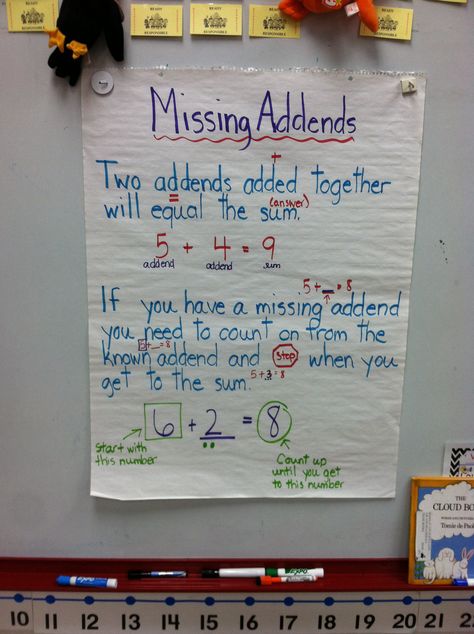 READY
READY
READY
READY
READY
RESPONSIBLE
RESPONSIBLE
RESPONSIBLE
RESPONSIBLE
Missing Addends
+
Two addends added together
=
(answer)
will equal the sum.
5 + 4 = 9
addend addend sum
5 + _ = 8
If you have a missing addend
you need to count on from the
5 + _ = 8
known addend and STOP when you
get to the sum. 5 + 3 = 8
6 + 2 = 8
Start with
this number
Count up
until you get
to this number
THE
CLOUD BO
Tomie de Pao
EXPO
EXPO
10 11 12 13 14 15 16 17 18 19 20 21 2